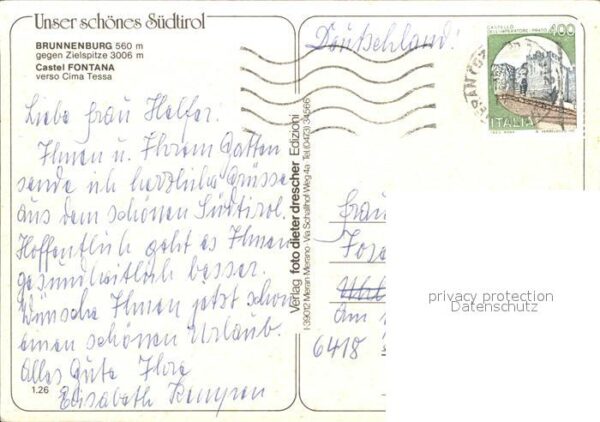 Unser schönes Südtirol
BRUNNENBURG 560 m
gegen Zielspitze 3006 m
Castel FONTANA
verso Cima Tessa
Liebe Frau Helfer!
Ihnen u. Ihrem Gatten
sende ich herzliche Grüsse
aus dem schönen Südtirol.
Hoffentlich geht es Ihnen
gesundheitlich besser.
Wünsche Ihnen jetzt schon
einen schönen Urlaub.
Alles Gute Ihre
Elisabeth
1.26
Verlag foto dieter drescher Edizioni
I-39012 Meran Merano · Via Schaffhof Weg 4a · Tel. (0473) 34566
Deutschland!
CASTELLO
DELL'IMPERATORE · PRATO
400
ITALIA
Frau
Am
6418
privacy protection
Datenschutz